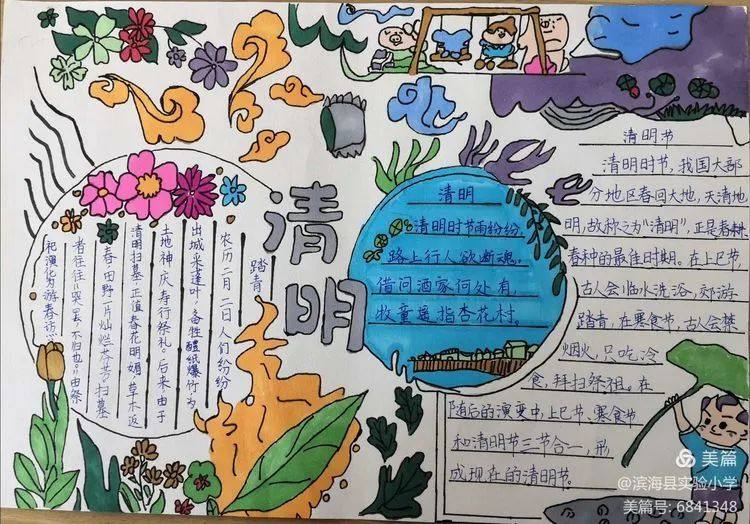 清明
踏青
农历二月二日人们纷纷
出城采蓬叶,各牲醴纸爆竹为
土地神庆寿行祭礼。后来由于
清明扫墓,正值春花明媚,草木返
春,田野一片灿烂芬芳,扫墓
者往往“哭罢,不归也。”由祭
祀演化为游春访
清明
清明时节雨纷纷,
路上行人欲断魂。
借问酒家何处有,
牧童遥指杏花村。
清明节
清明时节,我国大部
分地区春回大地,天清地
明,故称之为“清明”,正是春耕
春种的最佳时期。在上巳节,
古人会临水洗浴,郊游
踏青,在寒食节,古人会禁
烟火,只吃冷
食,拜扫祭祖。在
随后的演变中,上巳节、寒食节
和清明节三节合一,形
成现在的清明节。
美篇
@滨海县实验小学
美篇号: 6841348